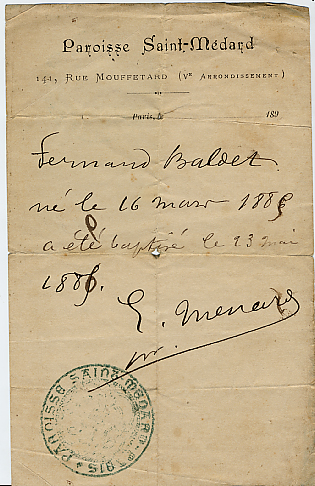 Paroisse Saint-Médard
141, Rue Mouffetard (Ve Arrondissement)
Paris, le 189
Fernand Baldet
né le 16 mars 1885
a été baptisé le 23 mai
1885.
E. Menard
PAROISSE SAINT MEDARD PARIS